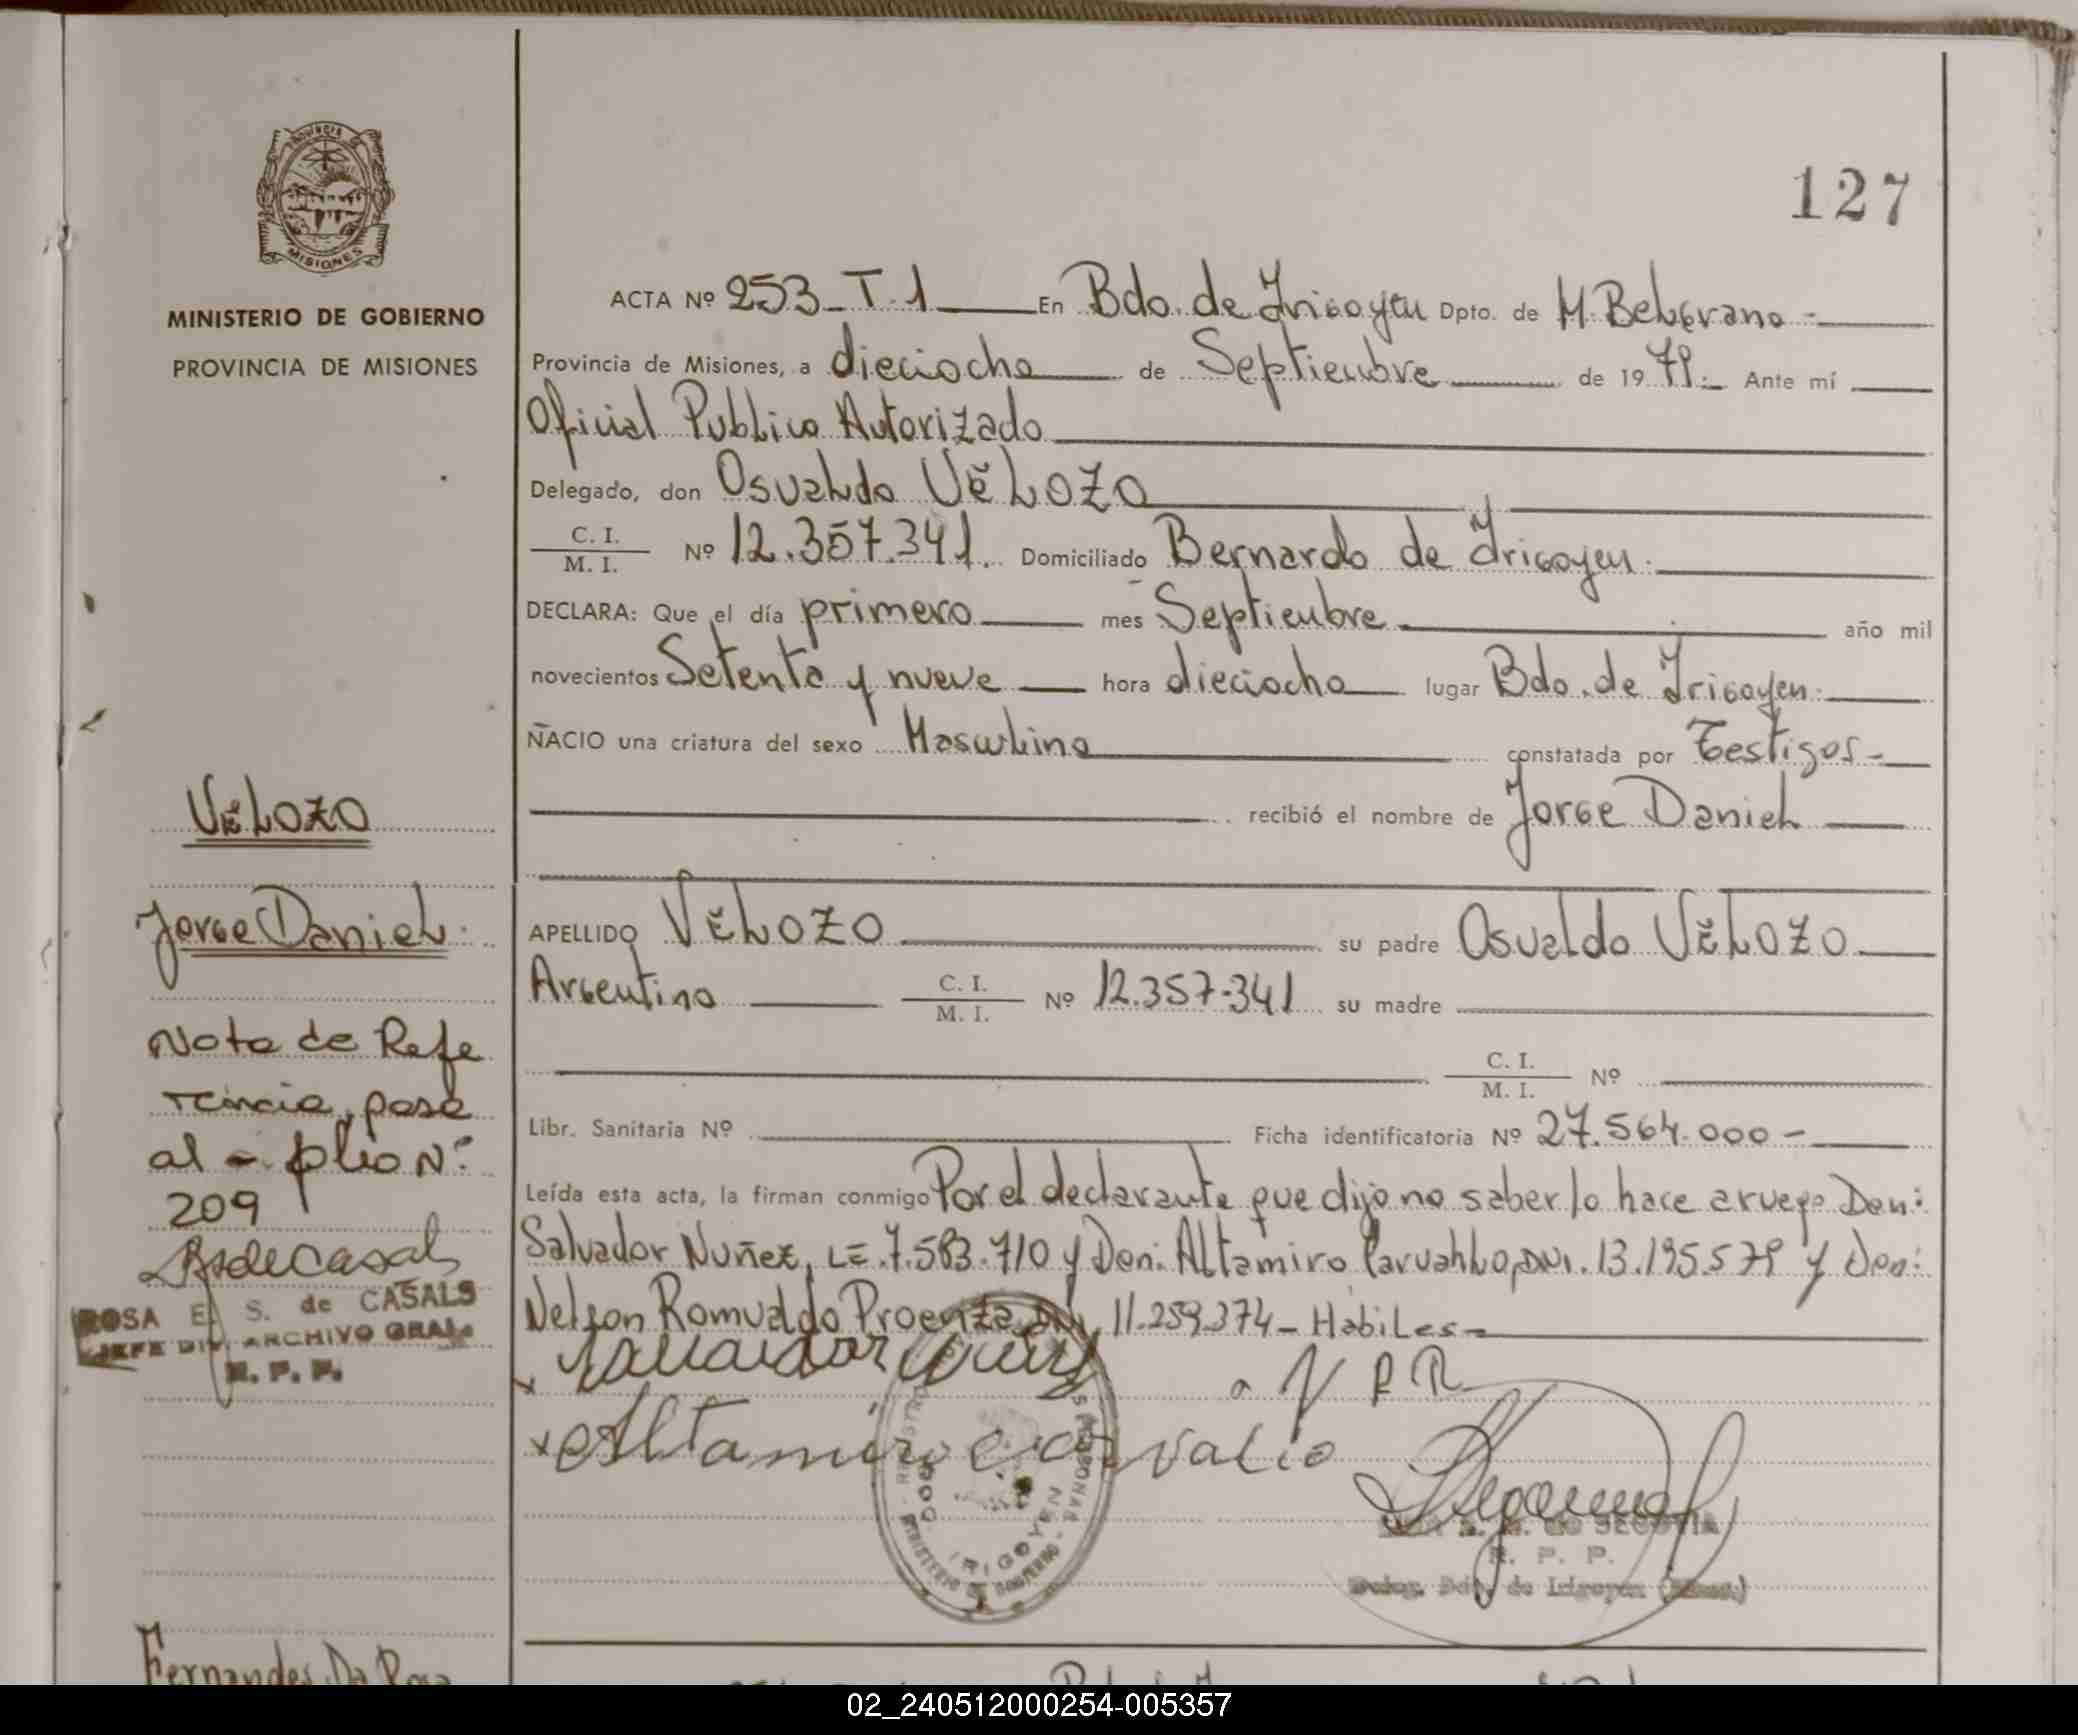 PROVINCIA DE
MISIONES
MINISTERIO DE GOBIERNO
PROVINCIA DE MISIONES
127
ACTA Nº 253_T.1 En Bdo. de Irigoyen Dpto. de M. Belgrano -
Provincia de Misiones, a dieciocho de Septiembre de 19 79.- Ante mí
Oficial Publico Autorizado
Delegado, don Osvaldo VĕLOZO
C. I.
M. I. Nº 12.357.341. Domiciliado Bernardo de Irigoyen.
DECLARA: Que el día primero mes Septiembre año mil
novecientos Setenta y nueve hora dieciocho lugar Bdo. de Irigoyen.
NACIO una criatura del sexo Masculino constatada por Testigos-
recibió el nombre de Jorge Daniel
APELLIDO VĕLOZO su padre Osvaldo VĕLOZO
Argentino C. I.
M. I. Nº 12.357.341 su madre
C. I.
M. I. Nº
Libr. Sanitaria Nº Ficha identificatoria Nº 27.564.000-
Leída esta acta, la firman conmigo Por el declarante que dijo no saber lo hace a ruego Don:
Salvador Nuñez, LE.7.583.710 y Don: Altamiro Carvahlo, DNI. 13.195.579 y Don:
Nelson Romualdo Proenza DNI 11.259.374- Habiles-
VĕLOZO
Jorge Daniel.
Nota de Refe
rencia, pasa
al - folio Nº
209
RSdeCasals
ROSA E. S. de CASALS
JEFE DIV. ARCHIVO GRAL.
R. P. P.
x Salvador Nuñez
N P R
x Altamiro carvalio
REGISTRO
PERSONAS
MINISTERIO DE GOBIERNO
BDO. IRIGOYEN
DE SEGOVIA
R. P. P.
Deleg. Bdo. de Irigoyen (Mnes.)
Fernandes Da Rosa
02_240512000254-005357